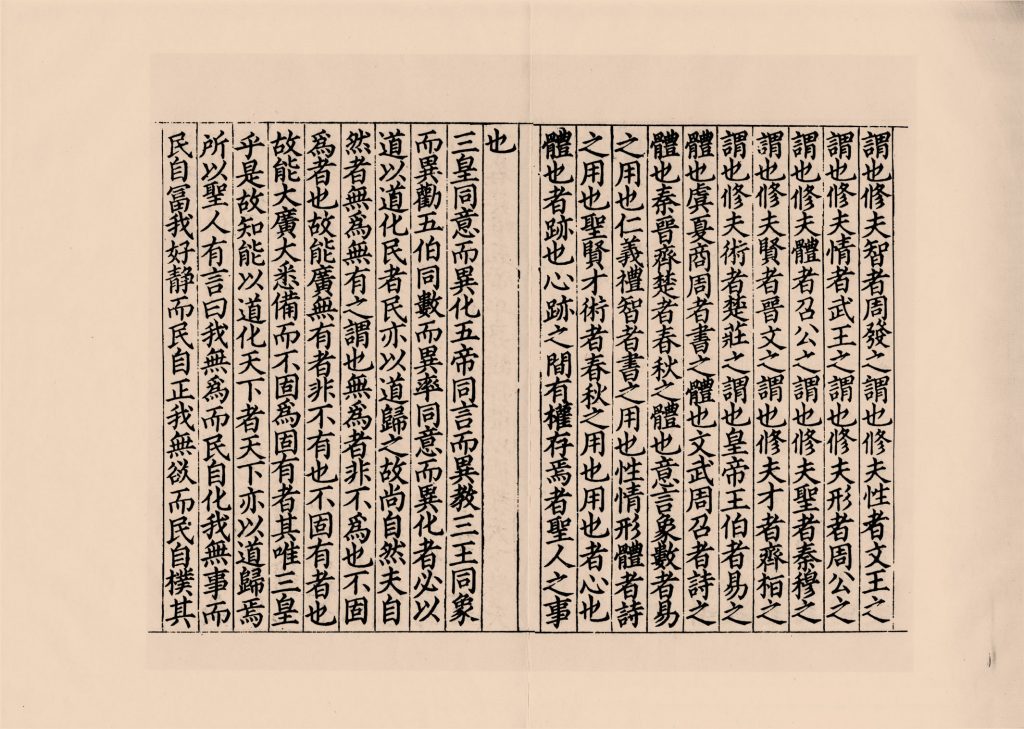 謂也修夫智者周發之謂也修夫性者文王之
謂也修夫情者武王之謂也修夫形者周公之
謂也修夫體者召公之謂也修夫聖者秦穆之
謂也修夫賢者晉文之謂也修夫才者齊桓之
謂也修夫術者楚莊之謂也皇帝王伯者易之
體也虞夏商周者書之體也文武周召者詩之
體也秦晉齊楚者春秋之體也意言象數者易
之用也仁義禮智者書之用也性情形體者詩
之用也聖賢才術者春秋之用也用也者心也
體也者跡也心跡之間有權存焉者聖人之事
也
三皇同意而異化五帝同言而異教三王同象
而異勸五伯同數而異率同意而異化者必以
道以道化民者民亦以道歸之故尚自然夫自
然者無爲無有之謂也無爲者非不爲也不固
爲者也故能廣無有者非不有也不固有者也
故能大廣大悉備而不固爲固有者其唯三皇
乎是故知能以道化天下者天下亦以道歸焉
所以聖人有言曰我無爲而民自化我無事而
民自冨我好静而民自正我無欲而民自樸其